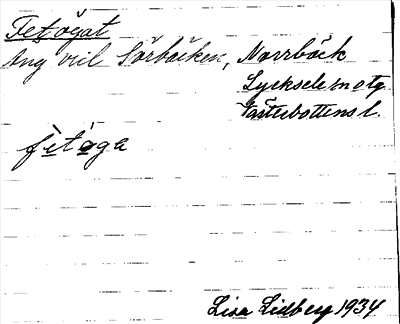 Fetögat
äng vid Sörbäcken, Norrbäck
Lycksele sn o tg
Västerbottens l.
fètöga
Lisa Lidberg 1934